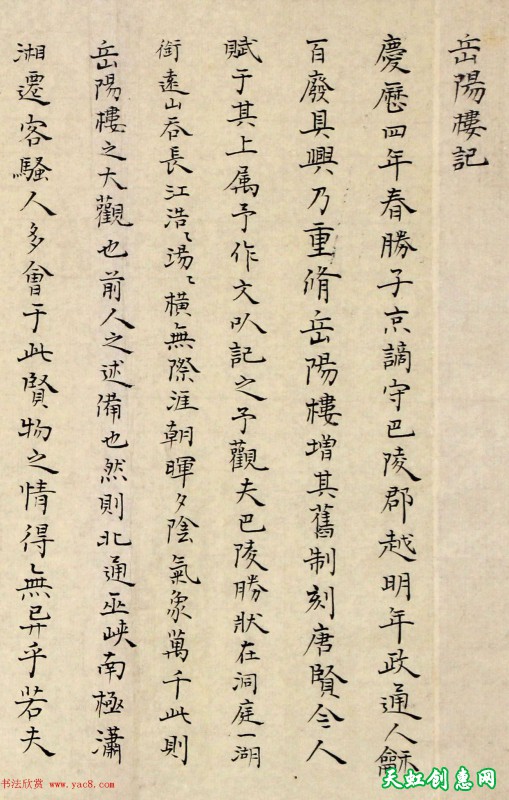 岳陽樓記
慶歷四年春勝子京謫守巴陵郡越明年政通人龢
百廢具興乃重脩岳陽樓增其舊制刻唐賢今人
賦于其上属予作文㕥記之予觀夫巴陵勝狀在洞庭一湖
銜遠山吞長江浩〻湯〻橫無際涯朝暉夕陰氣象萬千此則
岳陽樓之大觀也前人之述備也然則北通巫峽南極瀟
湘遷客騷人多會于此賢物之情得無异乎若夫
书法欣赏 www.yac8.com
天虹创惠网